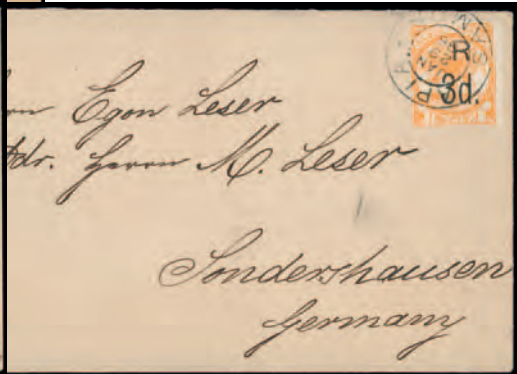 R
3d.
Egon Leser
Adr. Herrn M. Leser
Sondershausen
Germany